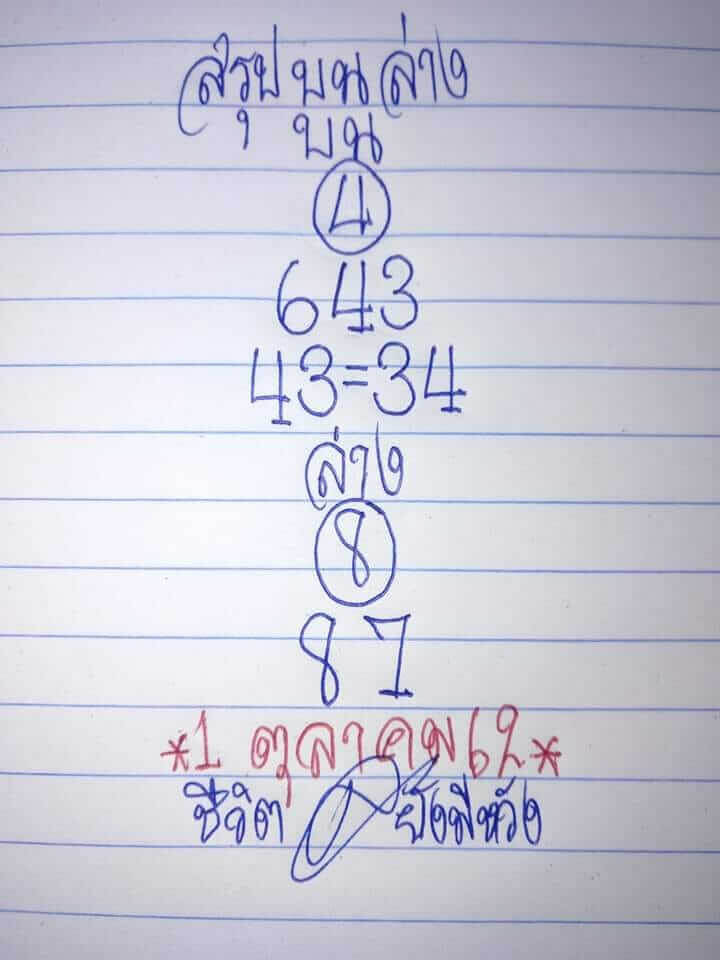 สรุป บน ล่าง
บน
4
643
43=34
ล่าง
8
87
*1 ตุลาคม 62*
ชีวิต ยังมีหวัง